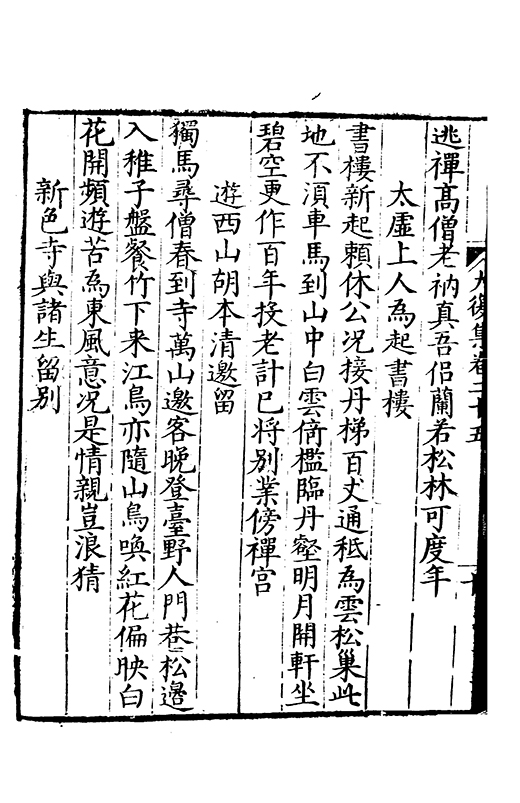 逃禪高僧老衲真吾侣蘭若松林可度年
太虛上人為起書樓
書樓新起頼休公况接丹梯百丈通秖為雲松巢此
地不湏車馬到山中白雲倚檻臨丹壑明月開軒坐
碧空更作百年投老計已將别業傍禪宫
遊西山胡本清邀留
獨馬尋僧春到寺萬山邀客晚登臺野人門巷松邉
入稚子盤餐竹下来江鳥亦隨山鳥喚紅花偏映白
花開頻遊苦為東風意况是情親豈浪猜
新色寺與諸生留别
集卷二十五